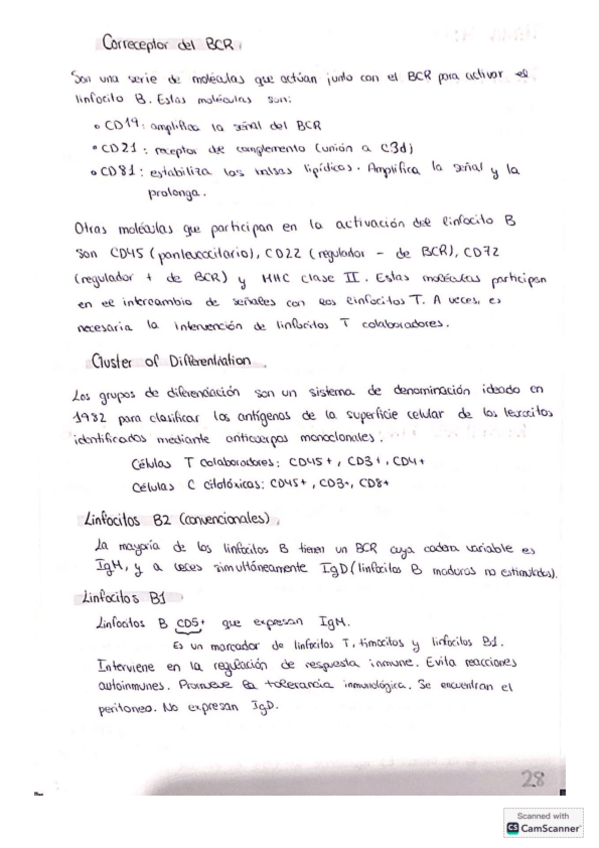 Correceptor del BCR
Son una serie de moléculas que actúan junto con el BCR para activar el
linfocito B. Estas moléculas son:
• CD19: amplifica la señal del BCR
• CD21: receptor de complemento (unión a C3d)
• CD81: estabiliza las balsas lipídicas. Amplifica la señal y la
prolonga.
Otras moléculas que participan en la activación del linfocito B
son CD45 (panleucocitario), CD22 (regulador - de BCR), CD72
(regulador + de BCR) y MHC clase II. Estas moléculas participan
en el intercambio de señales con los linfocitos T. A veces, es
necesaria la intervención de linfocitos T colaboradores.
Cluster of Differentiation
Los grupos de diferenciación son un sistema de denominación ideado en
1982 para clasificar los antígenos de la superficie celular de los leucocitos
identificados mediante anticuerpos monoclonales.
Células T colaboradores: CD45+, CD3+, CD4+
Células C citotóxicas: CD45+, CD3+, CD8+
Linfocitos B2 (convencionales)
La mayoría de los linfocitos B tienen un BCR cuya cadena variable es
IgM, y a veces simultáneamente IgD (linfocitos B maduros no estimulados).
Linfocitos B1
Linfocitos B CD5+ que expresan IgM.
Es un marcador de linfocitos T, timocitos y linfocitos B1.
Interviene en la regulación de respuesta inmune. Evita reacciones
autoinmunes. Promueve la tolerancia inmunológica. Se encuentran el
peritoneo. No expresan IgD.
28
Scanned with
CS CamScanner